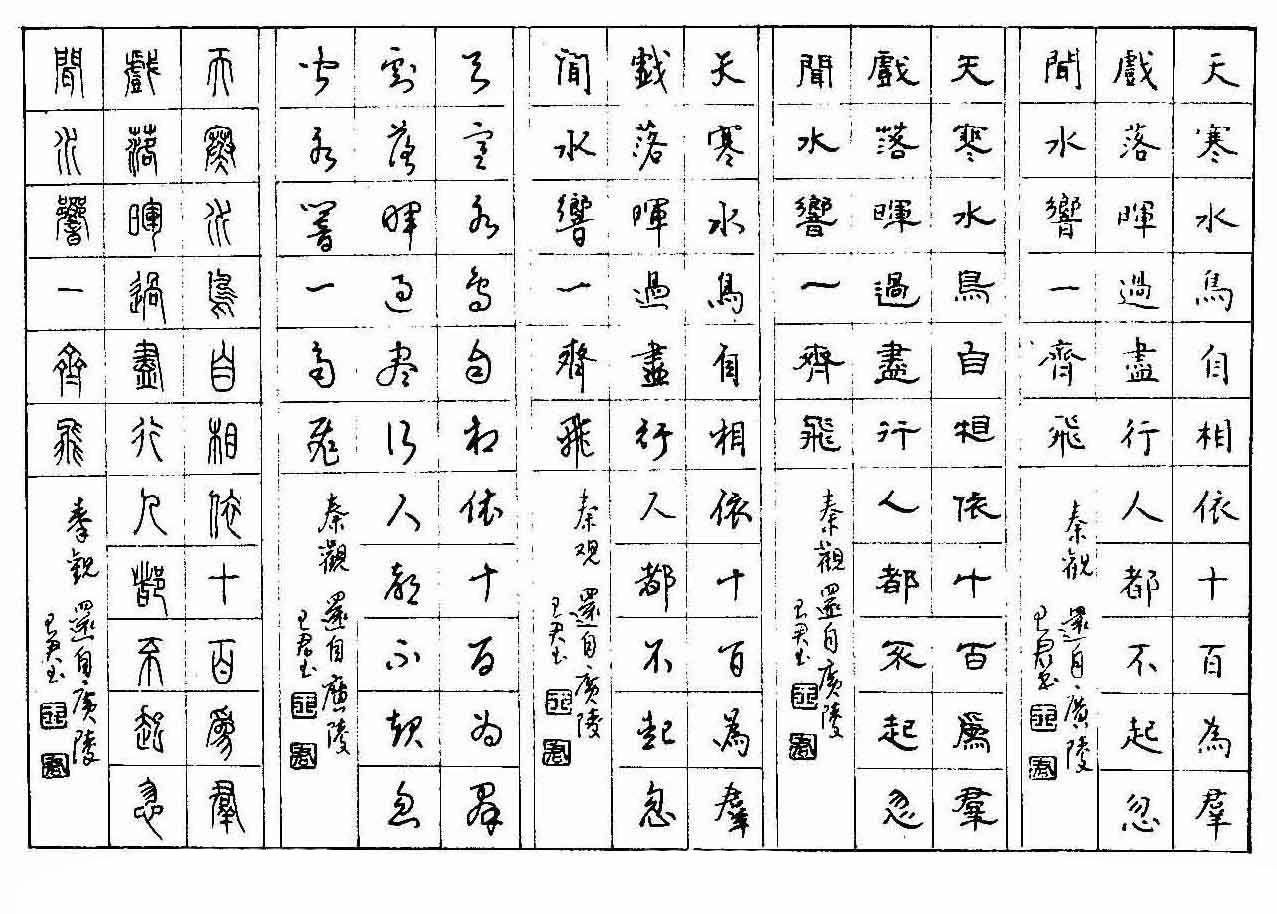 天寒水鳥自相依十百為羣
戲落暉過盡行人都不起忽
聞水響一齊飛
秦觀 還自廣陵
天寒水鳥自相依十百爲羣
戲落暉過盡行人都不起忽
聞水響一齊飛
秦觀 還自廣陵
天寒水鳥自相依十百為羣
戲落暉過盡行人都不起忽
聞水響一齊飛
秦观 還自廣陵
天寒水鳥自相依十百为群
戲落暉過盡行人都不起忽
聞水響一齊飛
秦觀 還自廣陵
天寒水鳥自相依十百爲羣
戲落暉過盡行人都不起忽
聞水響一齊飛
秦觀 還自廣陵